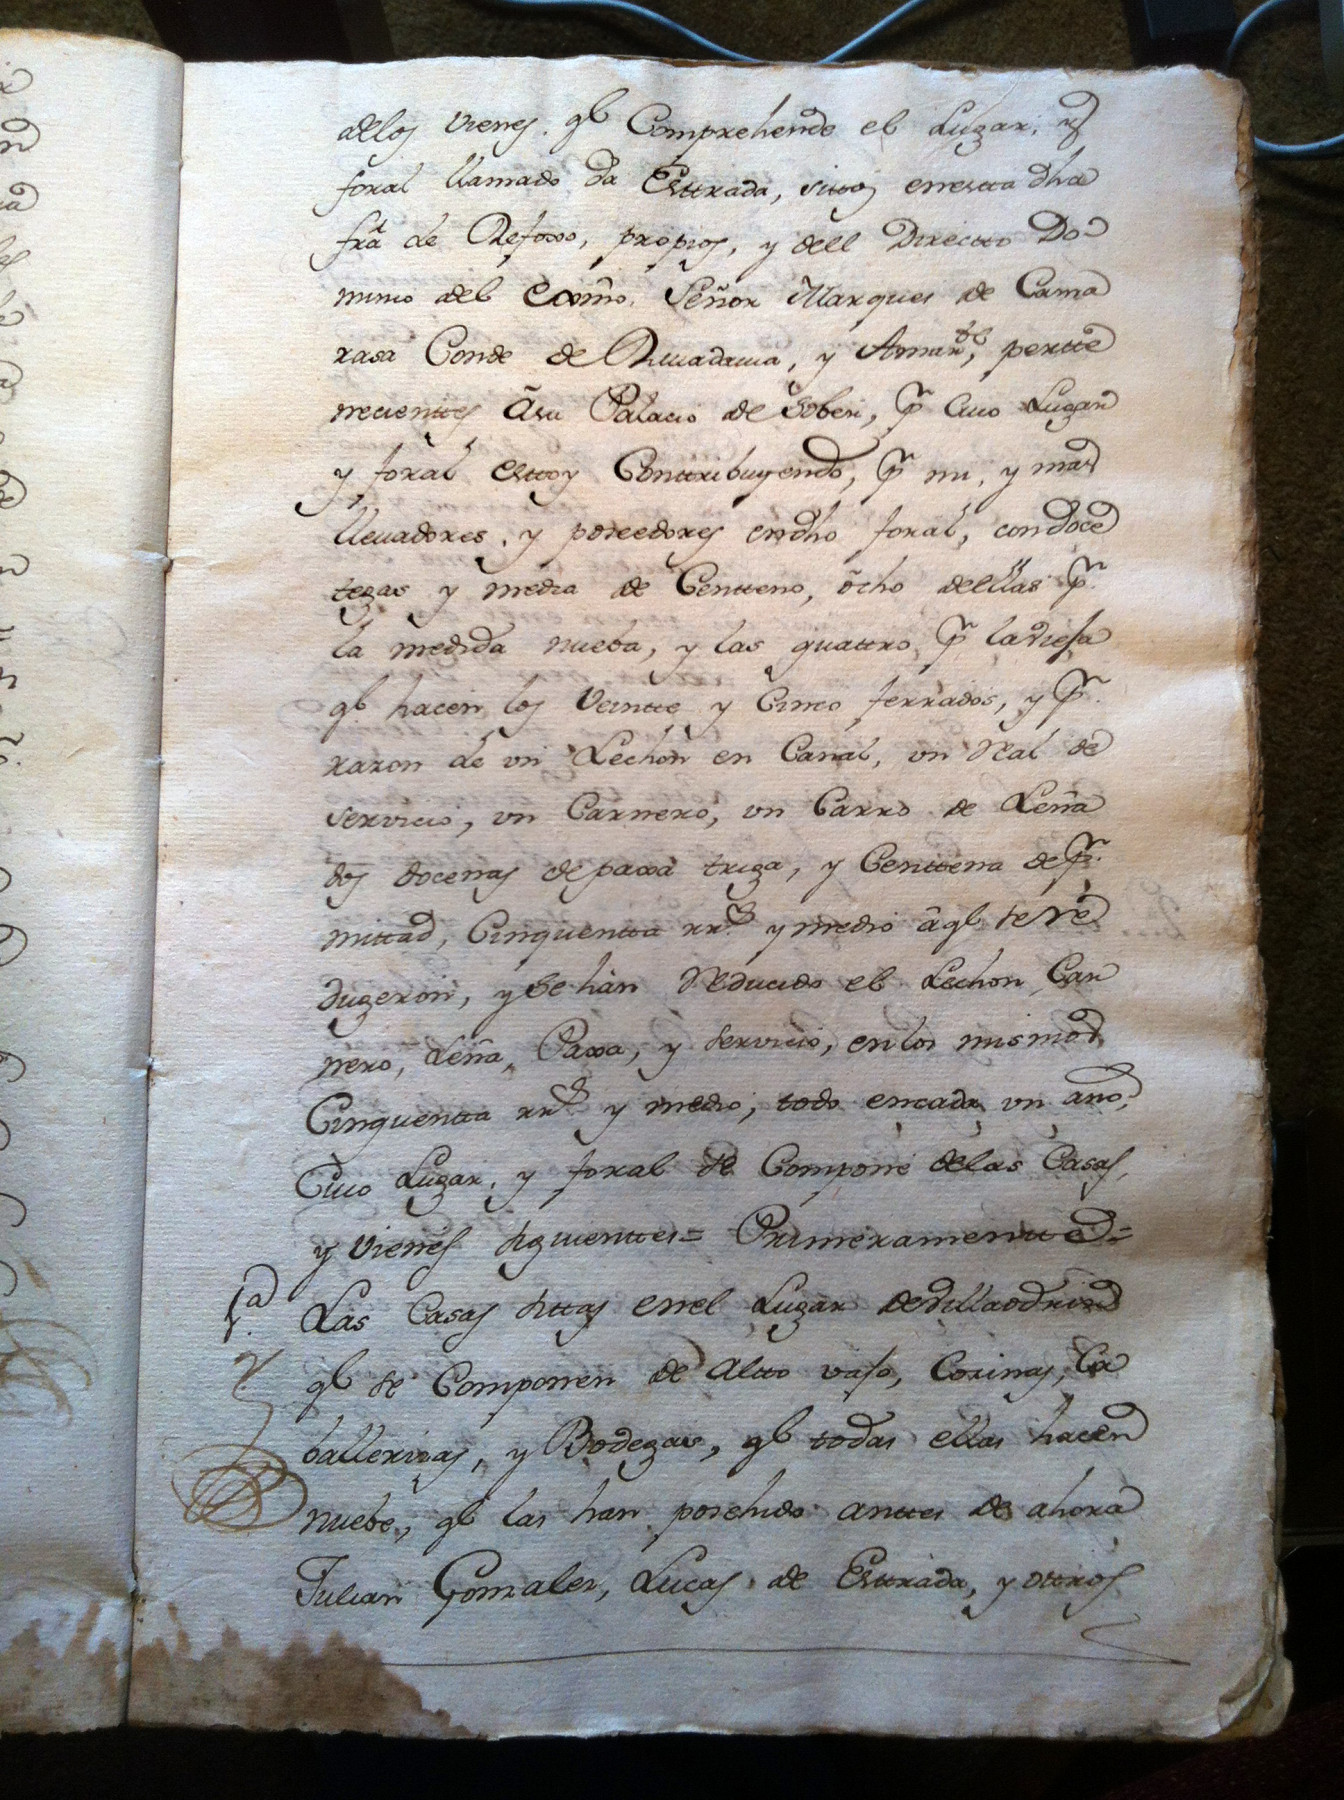 delos vienes, qe Comprehende el Lugar, y
foral llamado da Esttrada, sittos enestta dha
frâ de Refoxo, propios, y dell Directto Do-
minio del Exmo. Señor Marques de Cama
rasa Conde de Rivadavia, y Amarte, pertte
necienttes âsu Palacio de Sober, pr Cuio Lugar
y foral esttoy Conttribuyendo, pr mi, y mas
llevadores, y poseedores endho foral, con doce
tegas y media de Centteno, ôcho dellas pr
la medida nueba, y las quattro, pr la viefa
qe hacen los veintte y Cinco ferrados, y pr
razon de un Lechon en Canal, un Real de
servicio, un Carnero, un Carro de Leña
dos docenas de paxa triga, y Centtena de pr
mittad, Cinquentta rrs y medio âqe se Re
dugeron, y se hân Reducido el Lechon, Car
nero, Leña, Paxa, y servicio, en los mismos
Cinquentta rrs y medio, todo encada un año,
Cuio Lugar, y foral se Compone delas Casas,
y vienes siguienttes= Primeramentte=
1a Las Casas sittas enel Lugar de Villaodrid
qe se Componen de Altto vafo, Cozinas, Ca
ballerizas, y Bodegas, qe todas ellas hacen
nuebe, qe las han posehido anttes de ahora
Julian Gonzalez, Lucas de Esttrada, y ottros